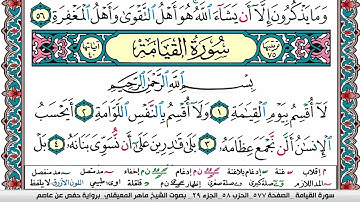 وَمَا يَذْكُرُونَ إِلَّا أَن يَشَاءَ اللَّهُ هُوَ أَهْلُ التَّقْوَىٰ وَأَهْلُ الْمَغْفِرَةِ ٥٦
سُورَةُ الْقِيَامَةِ
بِسْمِ اللَّهِ الرَّحْمَٰنِ الرَّحِيمِ
لَا أُقْسِمُ بِيَوْمِ الْقِيَٰمَةِ ١ وَلَا أُقْسِمُ بِالنَّفْسِ اللَّوَّامَةِ ٢ أَيَحْسَبُ
الْإِنسَٰنُ أَلَّن نَّجْمَعَ عِظَامَهُ ٣ بَلَىٰ قَٰدِرِينَ عَلَىٰ أَن نُّسَوِّيَ بَنَانَهُ ٤ بَلْ
سورة القيامة الصفحة ٥٧٧ الحزب ٥٨ الجزء ٢٩ بصوت الشيخ ماهر المعيقلي برواية حفص عن عاصم